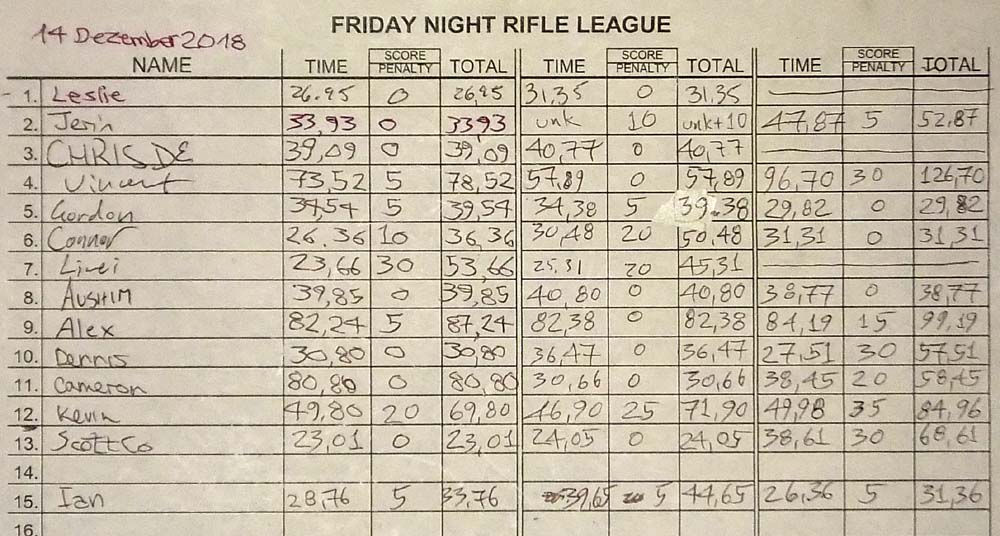 FRIDAY NIGHT RIFLE LEAGUE
14 Dezember 2018
NAME TIME SCORE PENALTY TOTAL TIME SCORE PENALTY TOTAL TIME SCORE PENALTY TOTAL
1. Leslie 26.95 0 26,95 31,35 0 31,35
2. Jerin 33,93 0 33,93 unk 10 unk+10 47,87 5 52,87
3. CHRIS DE 39,09 0 39,09 40,77 0 40,77
4. Vincent 73,52 5 78,52 57,89 0 57,89 96,70 30 126,70
5. Gordon 34,54 5 39,54 34,38 5 39.38 29,82 0 29,82
6. Connor 26.36 10 36,36 30,48 20 50,48 31,31 0 31,31
7. Liwei 23,66 30 53,66 25.31 20 45,31
8. AUSHIM 39,85 0 39,85 40,80 0 40,80 38,77 0 38,77
9. Alex 82,24 5 87,24 82,38 0 82,38 84,19 15 99,19
10. Dennis 30,80 0 30,80 36,47 0 36,47 27,51 30 57,51
11. Cameron 80,80 0 80,80 30,66 0 30,66 38,45 20 58,45
12. Kevin 49,80 20 69,80 46,90 25 71,90 49,98 35 84,96
13. ScottCo 23,01 0 23,01 24,05 0 24,05 38,61 30 68,61
14.
15. Ian 28,76 5 33,76 39,65 5 44,65 26,36 5 31,36
16.